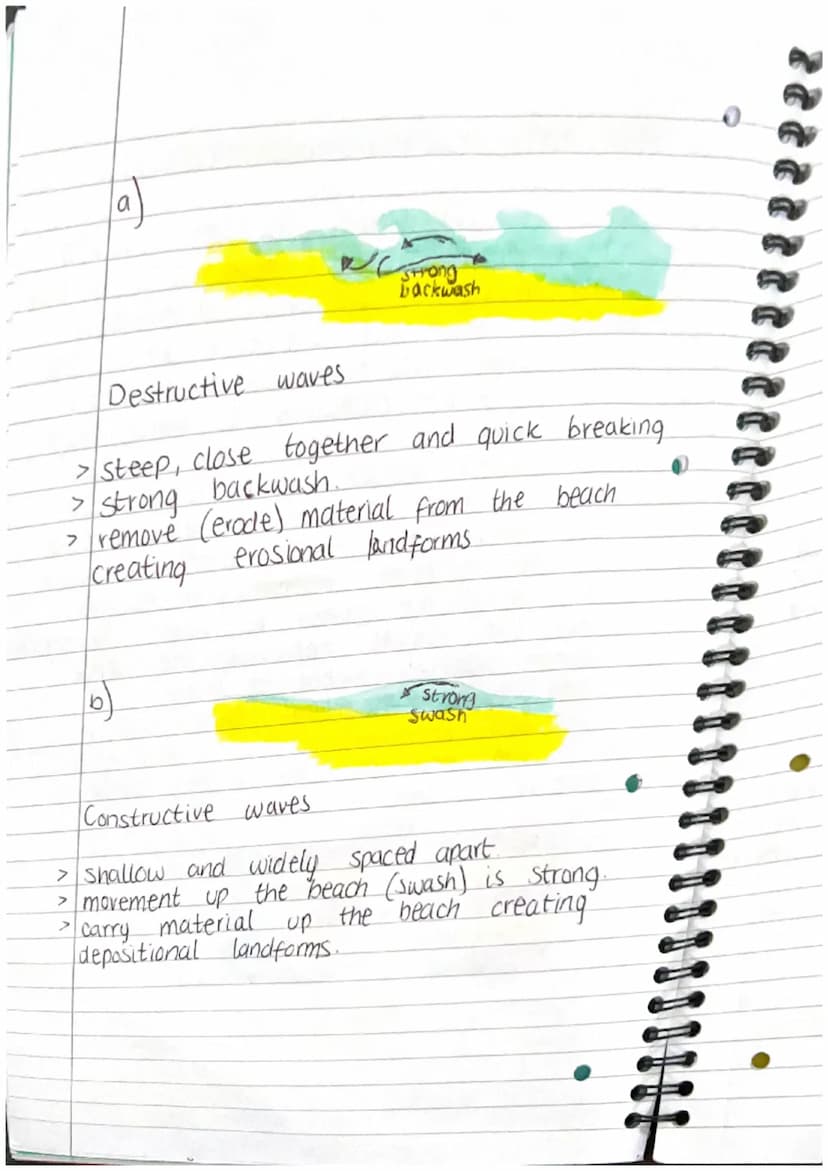 a)
strong
backwash
Destructive waves
> steep, close together and quick breaking
> strong backwash.
> remove (erode) material from the beach
creating erosional landforms
b)
strong
swash
Constructive waves
> shallow and widely spaced apart.
> movement up the beach (swash) is strong.
> carry material up the beach creating
depositional landforms.